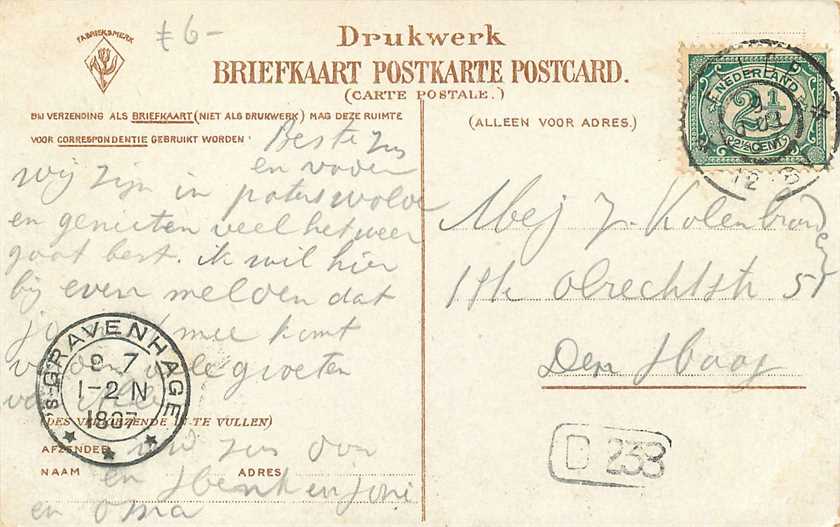 FABRIEKSMERK
f 6-
Drukwerk
BRIEFKAART POSTKARTE POSTCARD.
(CARTE POSTALE.)
BIJ VERZENDING ALS BRIEFKAART (NIET ALS DRUKWERK) MAG DEZE RUIMTE
VOOR CORRESPONDENTIE GEBRUIKT WORDEN
(ALLEEN VOOR ADRES.)
NEDERLAND
2½
2½ CENT
12
Beste Zus
en
wij zijn in paterswolde
en genieten veel het weer
gaat best. ik wil hier
bij even melden dat
mee komt
groeten
's-GRAVENHAGE
9 7
1-2 N
1907
(DES VERZOEKENDE IN TE VULLEN)
AFZENDER zus
NAAM ADRES
en Henk en
en oma
Mej J. Kolenbrander
Obrechtstr 51
Den Haag
D 233